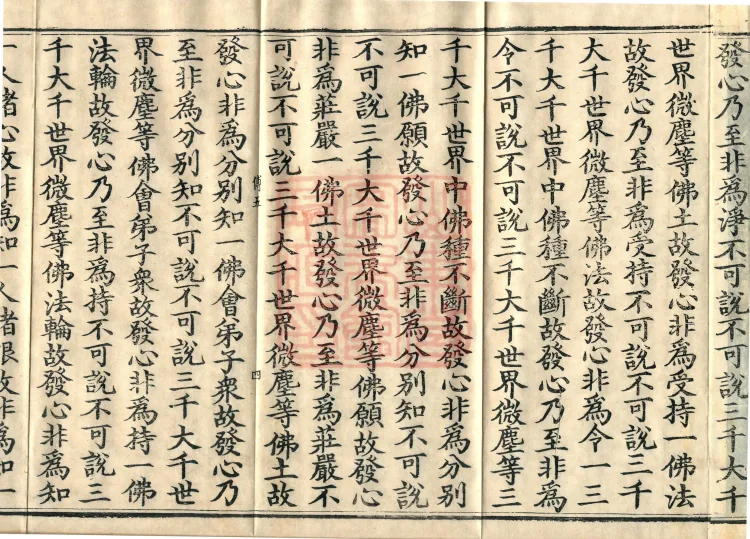 發心乃至非爲淨不可說不可說三千大千
世界微塵等佛土故發心非爲受持一佛法
故發心乃至非爲受持不可說不可說三千
大千世界微塵等佛法故發心非爲令一三
千大千世界中佛種不斷故發心乃至非爲
令不可說不可說三千大千世界微塵等三
千大千世界中佛種不斷故發心非爲分別
知一佛願故發心乃至非爲分別知不可說
不可說三千大千世界微塵等佛願故發心
非爲莊嚴一佛土故發心乃至非爲莊嚴不
可說不可說三千大千世界微塵等佛土故
五 四
發心非爲分別知一佛會弟子衆故發心乃
至非爲分別知不可說不可說三千大千世
界微塵等佛會弟子衆故發心非爲持一佛
法輪故發心乃至非爲持不可說不可說三
千大千世界微塵等佛法輪故發心非爲知
一人諸心故非爲知一人諸根故非爲知一